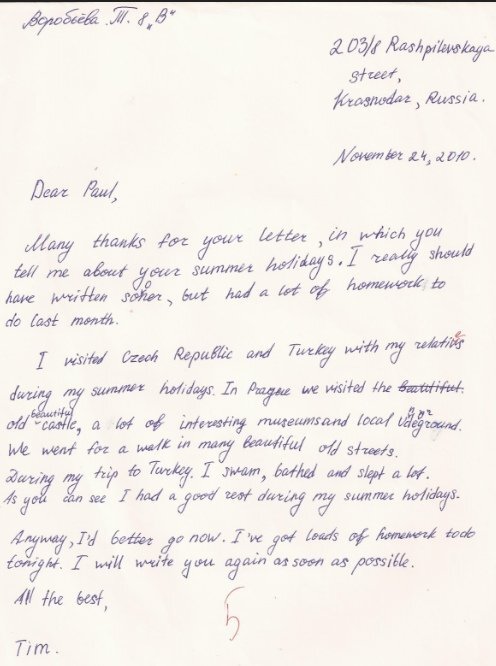 Воробьёва. Т. 8 „В“
203/8 Rashpilevskaya
street,
Krasnodar, Russia.
November 24, 2010.
Dear Paul,
Many thanks for your letter, in which you
tell me about your summer holidays. I really should
have written sooner, but had a lot of homework to
do last month.
I visited Czech Republic and Turkey with my relatives
during my summer holidays. In Prague we visited the beautiful
old beautiful castle, a lot of interesting museums and local
We went for a walk in many beautiful old streets.
During my trip to Turkey. I swam, bathed and slept a lot.
As you can see I had a good rest during my summer holidays.
Anyway, I'd better go now. I've got loads of homework todo
tonight. I will write you again as soon as possible.
All the best,
5
Tim.